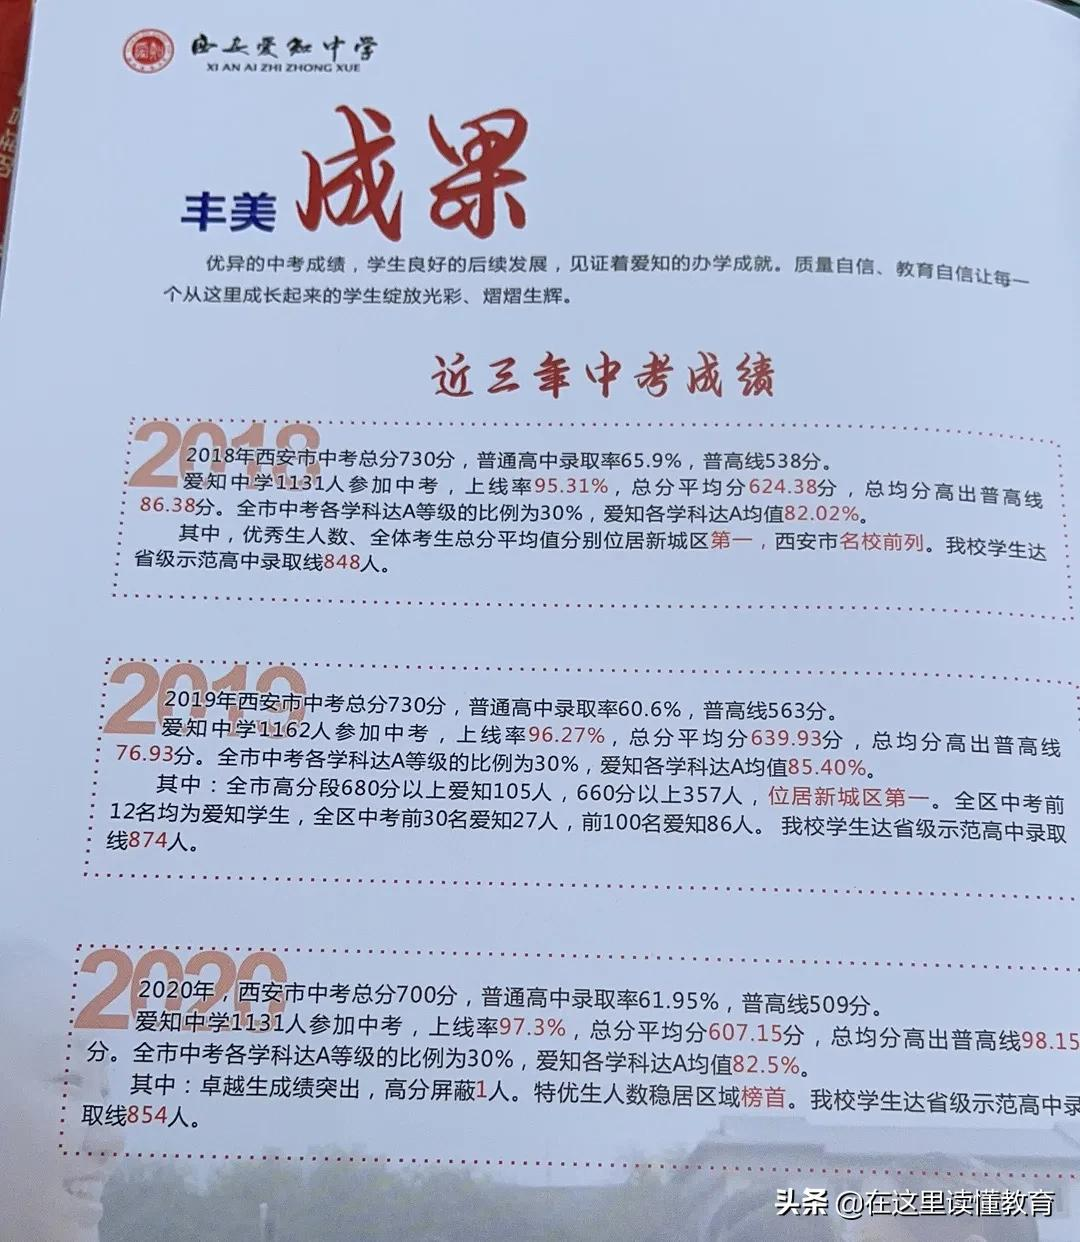 西安爱知中学
XI AN AI ZHI ZHONG XUE
丰美 成果
优异的中考成绩，学生良好的后续发展，见证着爱知的办学成就。质量自信、教育自信让每一
个从这里成长起来的学生绽放光彩、熠熠生辉。
近三年中考成绩
2018
2018年西安市中考总分730分，普通高中录取率65.9%，普高线538分。
爱知中学1131人参加中考，上线率95.31%，总分平均分624.38分，总均分高出普高线
86.38分。全市中考各学科达A等级的比例为30%，爱知各学科达A均值82.02%。
其中，优秀生人数、全体考生总分平均值分别位居新城区第一，西安市名校前列。我校学生达
省级示范高中录取线848人。
2019
2019年西安市中考总分730分，普通高中录取率60.6%，普高线563分。
爱知中学1162人参加中考，上线率96.27%，总分平均分639.93分，总均分高出普高线
76.93分。全市中考各学科达A等级的比例为30%，爱知各学科达A均值85.40%。
其中：全市高分段680分以上爱知105人，660分以上357人，位居新城区第一。全区中考前
12名均为爱知学生，全区中考前30名爱知27人，前100名爱知86人。 我校学生达省级示范高中录取
线874人。
2020
2020年，西安市中考总分700分，普通高中录取率61.95%，普高线509分。
爱知中学1131人参加中考，上线率97.3%，总分平均分607.15分，总均分高出普高线98.15
分。全市中考各学科达A等级的比例为30%，爱知各学科达A均值82.5%。
其中：卓越生成绩突出，高分屏蔽1人。特优生人数稳居区域榜首。我校学生达省级示范高中录
取线854人。
头条 @在这里读懂教育